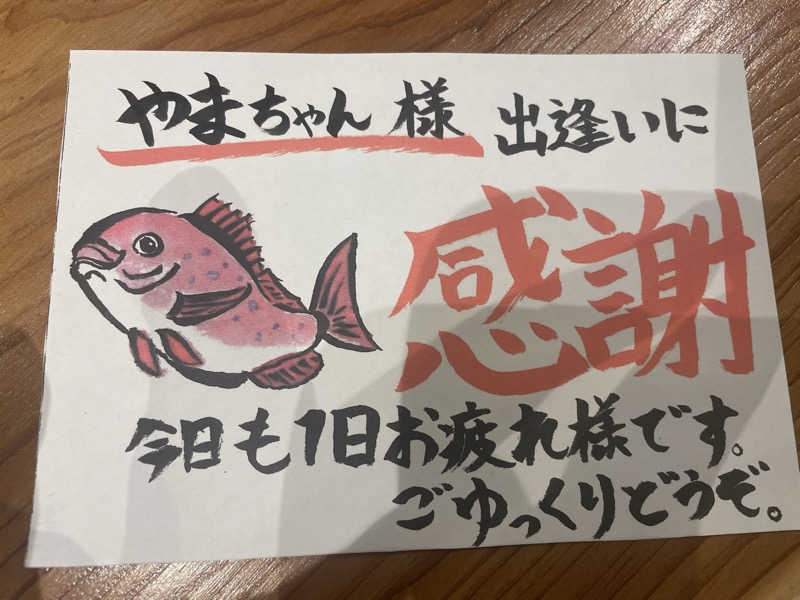 やまちゃん 様 出逢いに
感謝
今日も1日お疲れ様です。
ごゆっくりどうぞ。